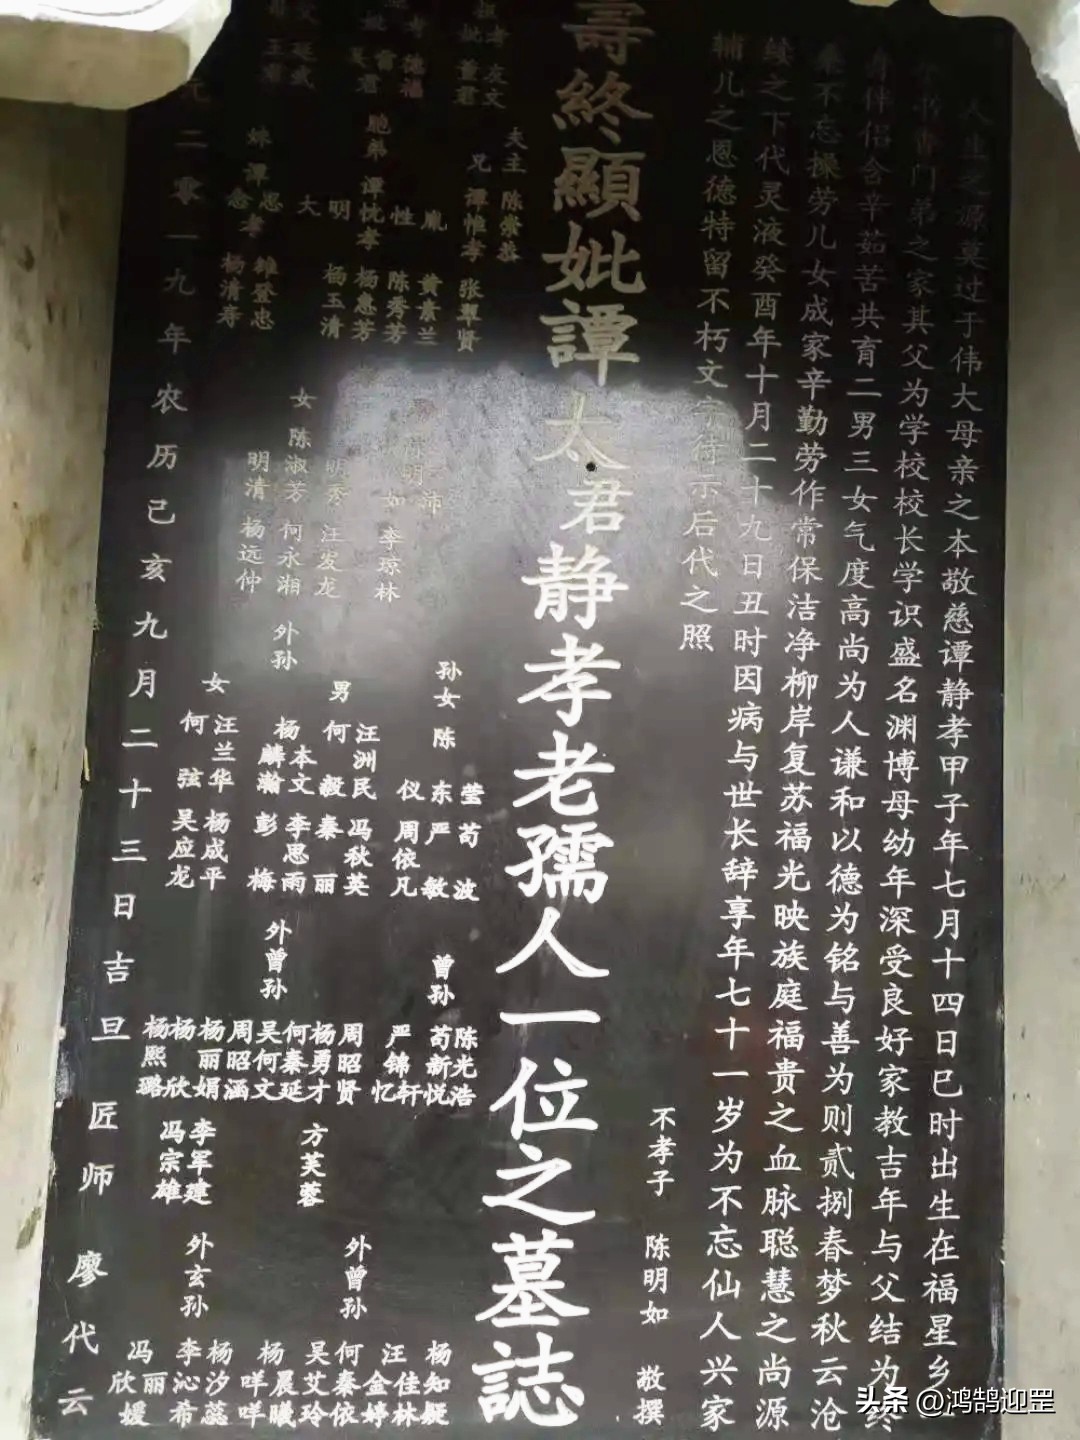 人生之源莫过于伟大母亲之本敬慈谭静孝甲子年七月十四日巳时出生在福星乡
书香门弟之家其父为学校校长学识盛名渊博母幼年深受良好家教吉年与父结为终
身伴侣含辛茹苦共育二男三女气度高尚为人谦和以德为铭与善为则贰捌春梦秋云沧
桑不忘操劳儿女成家辛勤劳作常保洁净柳岸复苏福光映族庭福贵之血脉聪慧之尚源
续之下代灵液癸酉年十月二十九日丑时因病与世长辞享年七十一岁为不忘仙人兴家
辅儿之恩德特留不朽文字待示后代之照
不孝子 陈明如 敬撰
壽終顯妣譚太君静孝老孺人一位之墓誌
夫主 陈崇恭
兄 谭惟孝 张翠贤
胞弟 谭忱孝
黄素兰
陈秀芳
杨惠芳
杨玉清
妹 谭思孝 钟登忠
念孝 杨清寿
陈明沛
如 李琼林
女 陈淑芳 何永湘
明秀 汪发龙
明清 杨远仲
孙女 陈
莹 苟波
东 严敏
仪 周依凡
外孙
男
汪洲民 冯秋英
何毅 秦丽
杨本文 李思雨
麟瀚 彭梅
女
汪兰华 杨成平
何弦 吴应龙
曾孙
陈光浩
苟新悦
严锦轩
忆
外曾孙
周昭贤
杨勇才
何秦延
吴何文
周昭涵
杨丽娟
杨欣
杨熙璐
方芙蓉
李军建
冯宗雄
外曾孙
杨知疑
汪佳林
金婷
何秦依
吴艾玲
杨晨曦
咩咩
外玄孙
杨汐蕊
李沁希
冯丽媛
欣
二零一九年农历己亥九月二十三日吉旦 匠师 廖代云
头条 @鸿鹄迎罡